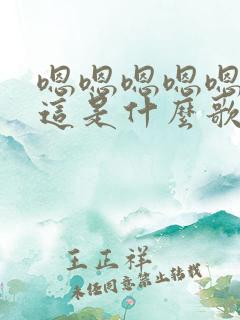 嗯嗯嗯嗯嗯
這是什麼歌
王正祥
未经同意禁止转载